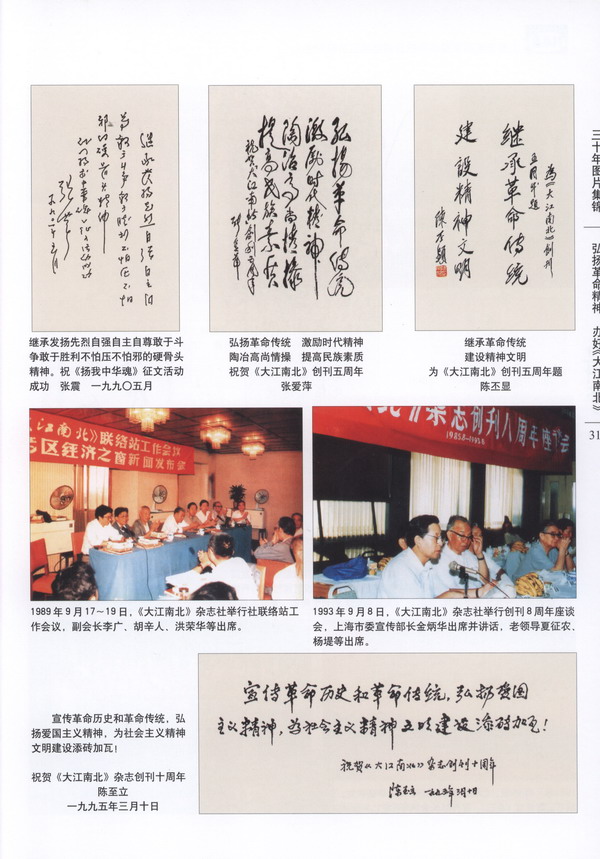 继承发扬先烈自强自主自尊敢于斗
争敢于胜利不怕压不怕邪的硬骨头
精神。祝《扬我中华魂》征文活动
成功 张震 一九九〇五月
弘扬革命传统
激励时代精神
陶冶高尚情操
提高民族素质
祝贺《大江南北》创刊五周年
弘扬革命传统 激励时代精神
陶冶高尚情操 提高民族素质
祝贺《大江南北》创刊五周年
张爱萍
为《大江南北》创刊
五周年题
继承革命传统
建设精神文明
陈丕显
继承革命传统
建设精神文明
为《大江南北》创刊五周年题
陈丕显
三十年图片集锦
弘扬革命精神 办好《大江南北》
31
江南北》联络站工作会议
区经济之窗新闻发布会
1989年9月17~19日,《大江南北》杂志社举行社联络站工
作会议,副会长李广、胡辛人、洪荣华等出席。
北》杂志创刊八周年座谈会
1985.8-1993.8
1993年9月8日,《大江南北》杂志社举行创刊8周年座谈
会,上海市委宣传部长金炳华出席并讲话,老领导夏征农、
杨堤等出席。
宣传革命历史和革命传统,弘
扬爱国主义精神,为社会主义精神
文明建设添砖加瓦!
祝贺《大江南北》杂志创刊十周年
陈至立
一九九五年三月十日
宣传革命历史和革命传统,弘扬爱国
主义精神,为社会主义精神文明建设添砖加瓦!
祝贺《大江南北》杂志创刊十周年
陈至立 一九九五年三月十日